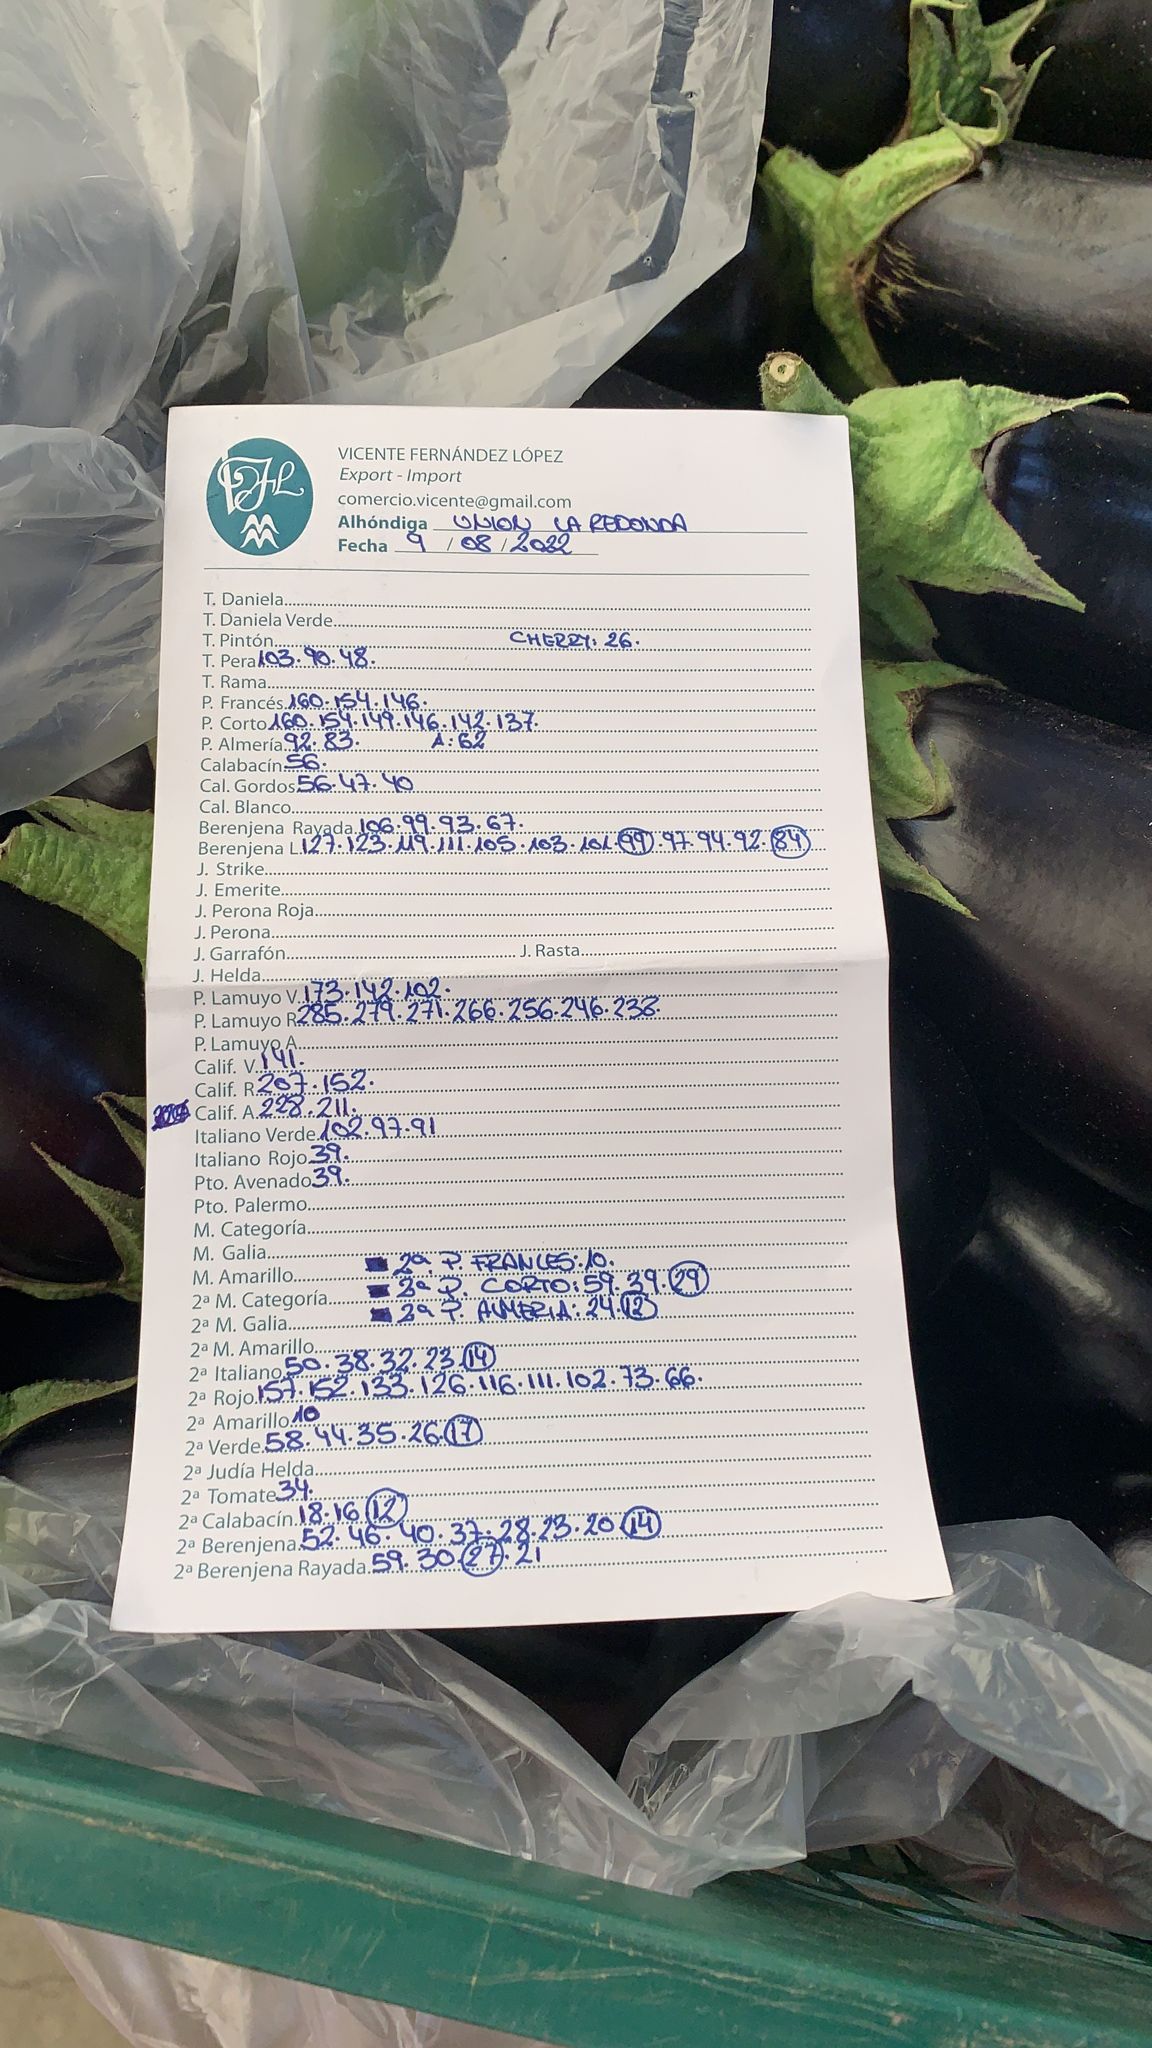 VFL
VICENTE FERNÁNDEZ LÓPEZ
Export - Import
comercio.vicente@gmail.com
Alhóndiga UNION LA REDONDA
Fecha 9 / 08 / 2022
T. Daniela
T. Daniela Verde
T. Pintón CHERRY: 26.
T. Pera 103. 90. 48.
T. Rama
P. Francés 160. 154. 146.
P. Corto 160. 154. 149. 146. 142. 137.
P. Almería 92. 83. A: 62
Calabacín 56.
Cal. Gordos 56. 47. 40
Cal. Blanco
Berenjena Rayada 106. 99. 93. 67.
Berenjena L 127. 123. 119. 111. 105. 103. 101. 99. 97. 94. 92. 84
J. Strike
J. Emerite
J. Perona Roja
J. Perona
J. Garrafón J. Rasta
J. Helda
P. Lamuyo V. 173. 142. 102.
P. Lamuyo R 285. 279. 271. 266. 256. 246. 238.
P. Lamuyo A
Calif. V. 141.
Calif. R 207. 152.
Calif. A 228. 211.
Italiano Verde 102. 97. 91
Italiano Rojo 39.
Pto. Avenado 39.
Pto. Palermo
M. Categoría
M. Galia
M. Amarillo 2ª. P. FRANCES: 10.
2ª M. Categoría 2ª P. CORTO: 59. 39. 29
2ª M. Galia 2ª P. ALMERIA: 24. 12
2ª M. Amarillo
2ª Italiano 50. 38. 32. 23. 14
2ª Rojo 157. 152. 133. 126. 116. 111. 102. 73. 66.
2ª Amarillo 10
2ª Verde 58. 44. 35. 26. 17
2ª Judía Helda
2ª Tomate 34.
2ª Calabacín 18. 16 12
2ª Berenjena 52. 46. 40. 37. 28. 23. 20 14
2ª Berenjena Rayada 59. 30. 27. 21